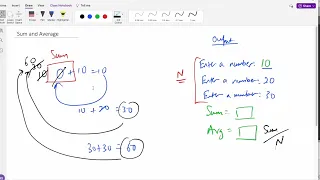 Sum and Average
Sum
60
30
10
0 + 10 = 10
10 + 20 = 30
30+30 = 60
Output
N
Enter a number: 10
Enter a number: 20
Enter a number: 30
Sum =
Avg =
Sum
N